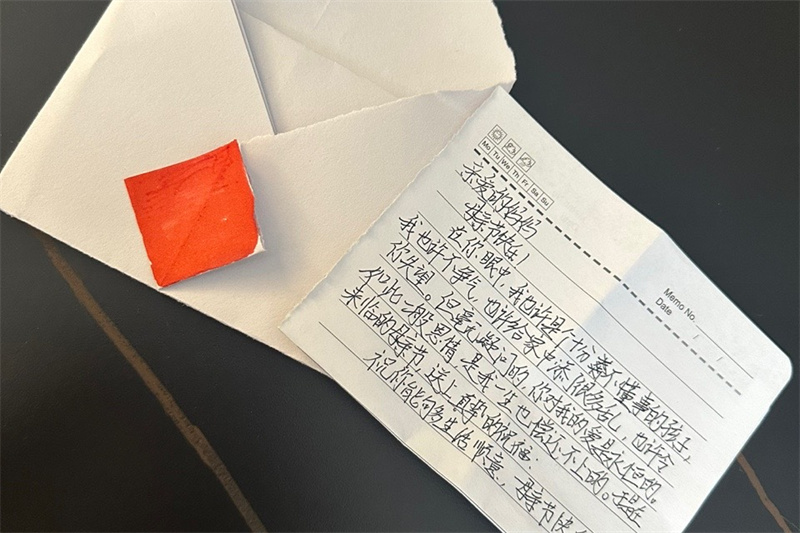 Memo No.
Date / /
Mo Tu We Th Fr Sa Su
亲爱的妈妈
母亲节快乐！
在你眼中，我也许是个切慕不懂事的孩子，
我也许不争气，也许给家中添了很多乱，也许令
你失望。但毫无疑问的，你对我的爱是永恒的。
们此一般恩情是我一生也偿还不上的。现在
来临的母亲节，送上真挚的祝福：
祝你能何多生活顺意，母亲节快